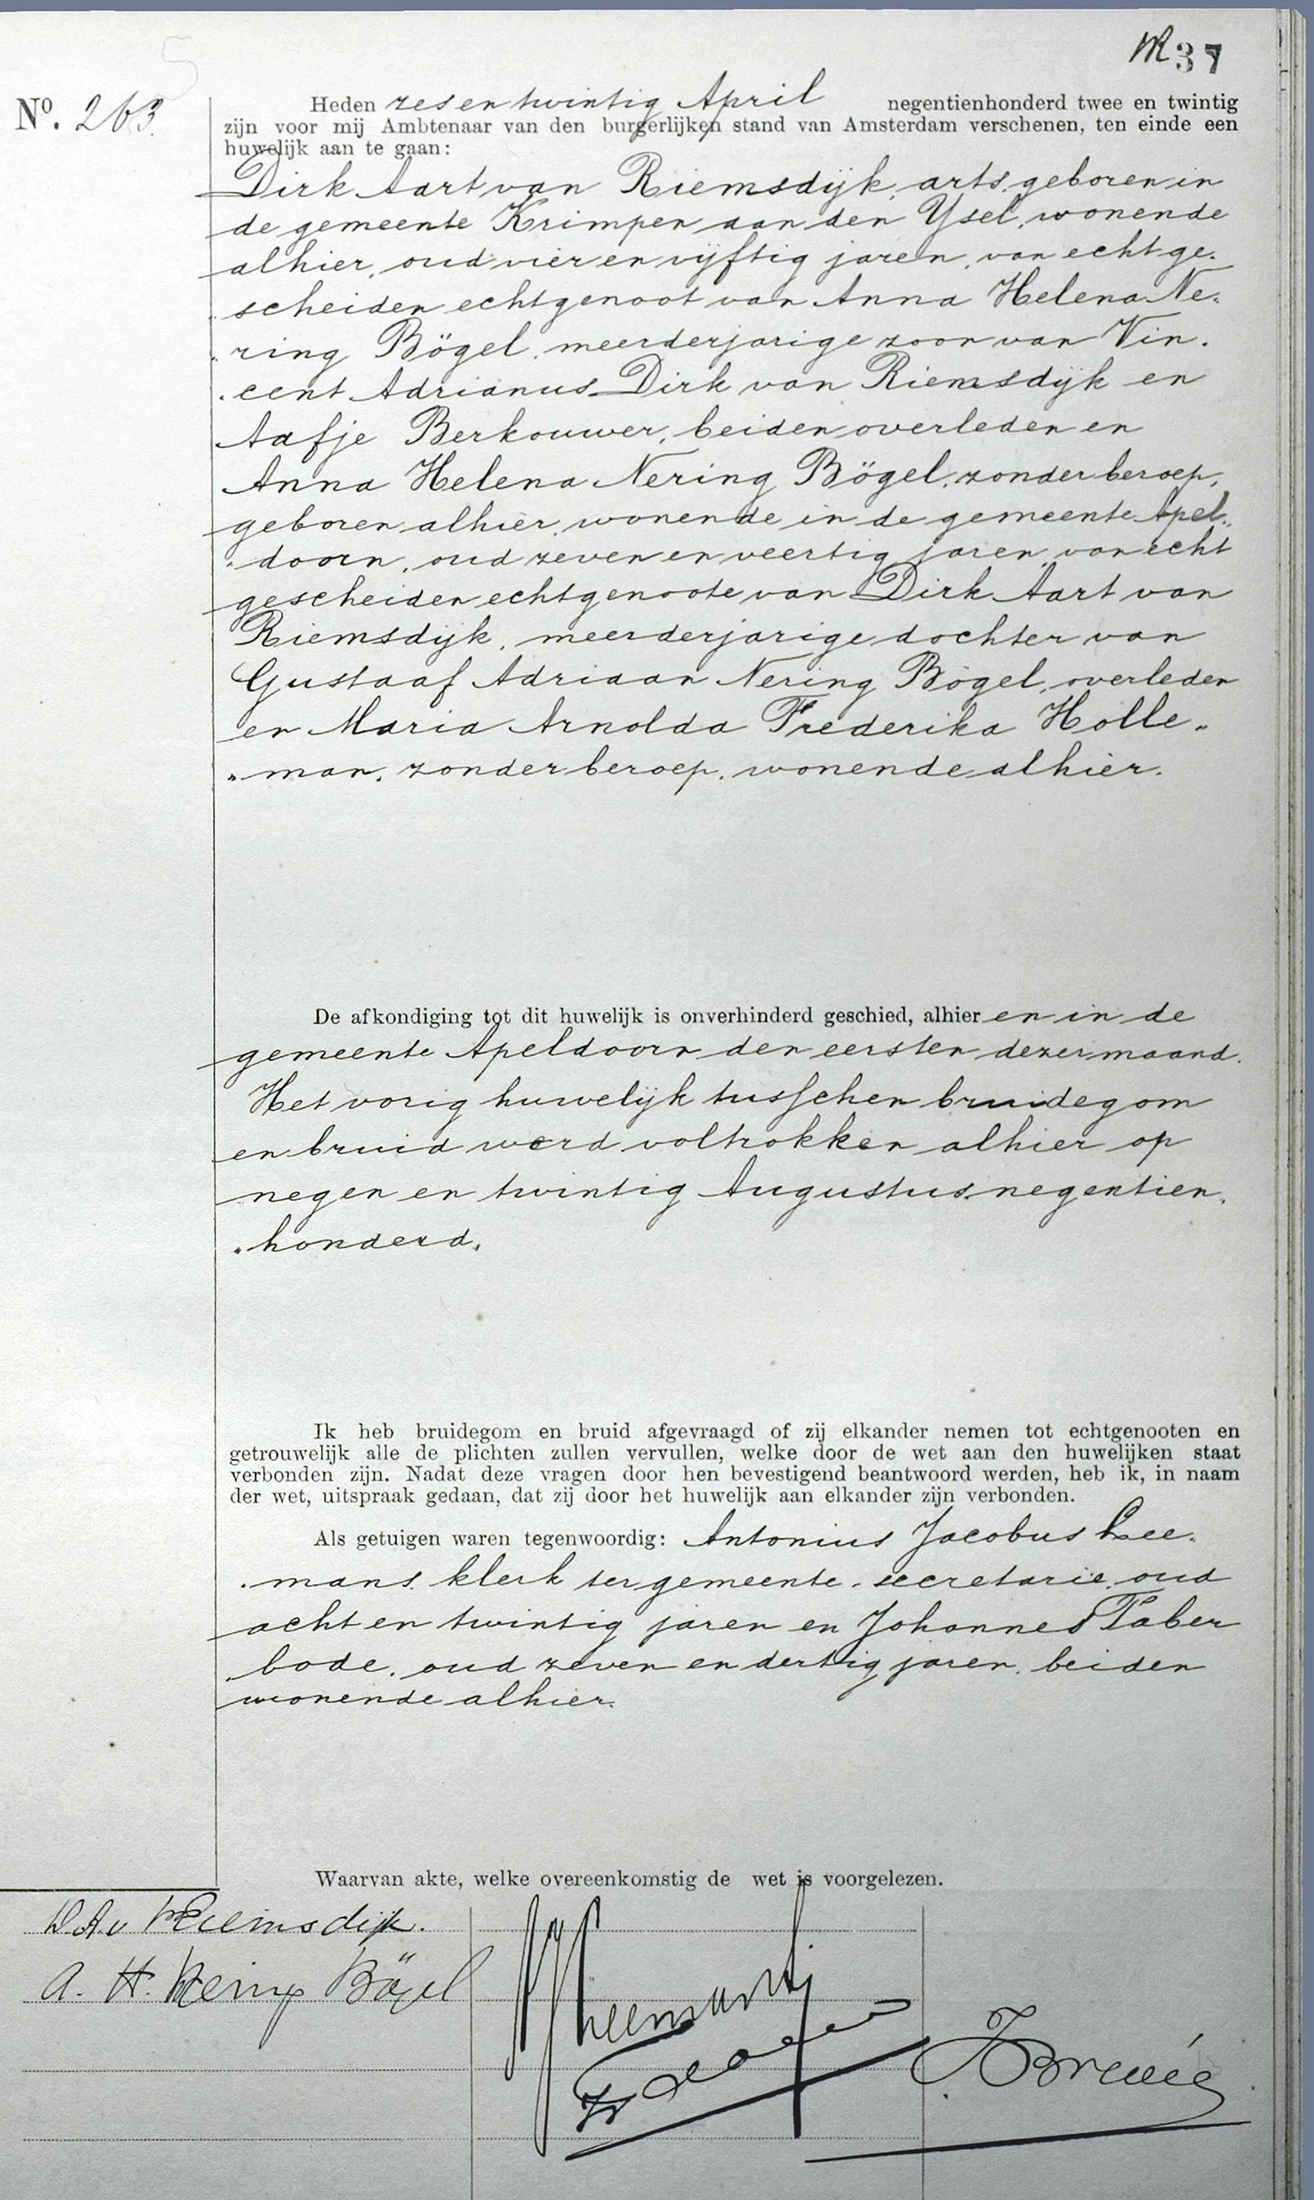 M 37
5
No. 263.
Heden zes en twintig April negentienhonderd twee en twintig
zijn voor mij Ambtenaar van den burgerlijken stand van Amsterdam verschenen, ten einde een
huwelijk aan te gaan:
Dirk Aart van Riemsdijk, arts, geboren in
de gemeente Krimpen aan den Ysel, wonende
alhier, oud vier en vijftig jaren, van echt ge-
scheiden echtgenoot van Anna Helena Ne-
ring Bögel, meerderjarige zoon van Vin-
cent Adrianus Dirk van Riemsdijk en
Aafje Berkouwer, beiden overleden en
Anna Helena Nering Bögel, zonder beroep,
geboren alhier, wonende in de gemeente Apel-
doorn, oud zeven en veertig jaren, van echt
gescheiden echtgenoote van Dirk Aart van
Riemsdijk, meerderjarige dochter van
Gustaaf Adriaan Nering Bögel, overleden
en Maria Arnolda Frederika Holle-
man, zonder beroep, wonende alhier.
De afkondiging tot dit huwelijk is onverhinderd geschied, alhier en in de
gemeente Apeldoorn den eersten dezer maand.
Het vorig huwelijk tusschen bruidegom
en bruid werd voltrokken alhier op
negen en twintig Augustus negentien-
honderd.
Ik heb bruidegom en bruid afgevraagd of zij elkander nemen tot echtgenooten en
getrouwelijk alle de plichten zullen vervullen, welke door de wet aan den huwelijken staat
verbonden zijn. Nadat deze vragen door hen bevestigend beantwoord werden, heb ik, in naam
der wet, uitspraak gedaan, dat zij door het huwelijk aan elkander zijn verbonden.
Als getuigen waren tegenwoordig: Antonius Jacobus Lee-
mans, klerk ter gemeente-secretarie, oud
acht en twintig jaren en Johannes Faber
bode, oud zeven en dertig jaren, beiden
wonende alhier.
Waarvan akte, welke overeenkomstig de wet is voorgelezen.
D A v Riemsdijk.
A. H. Nering Bögel
AJLeemans